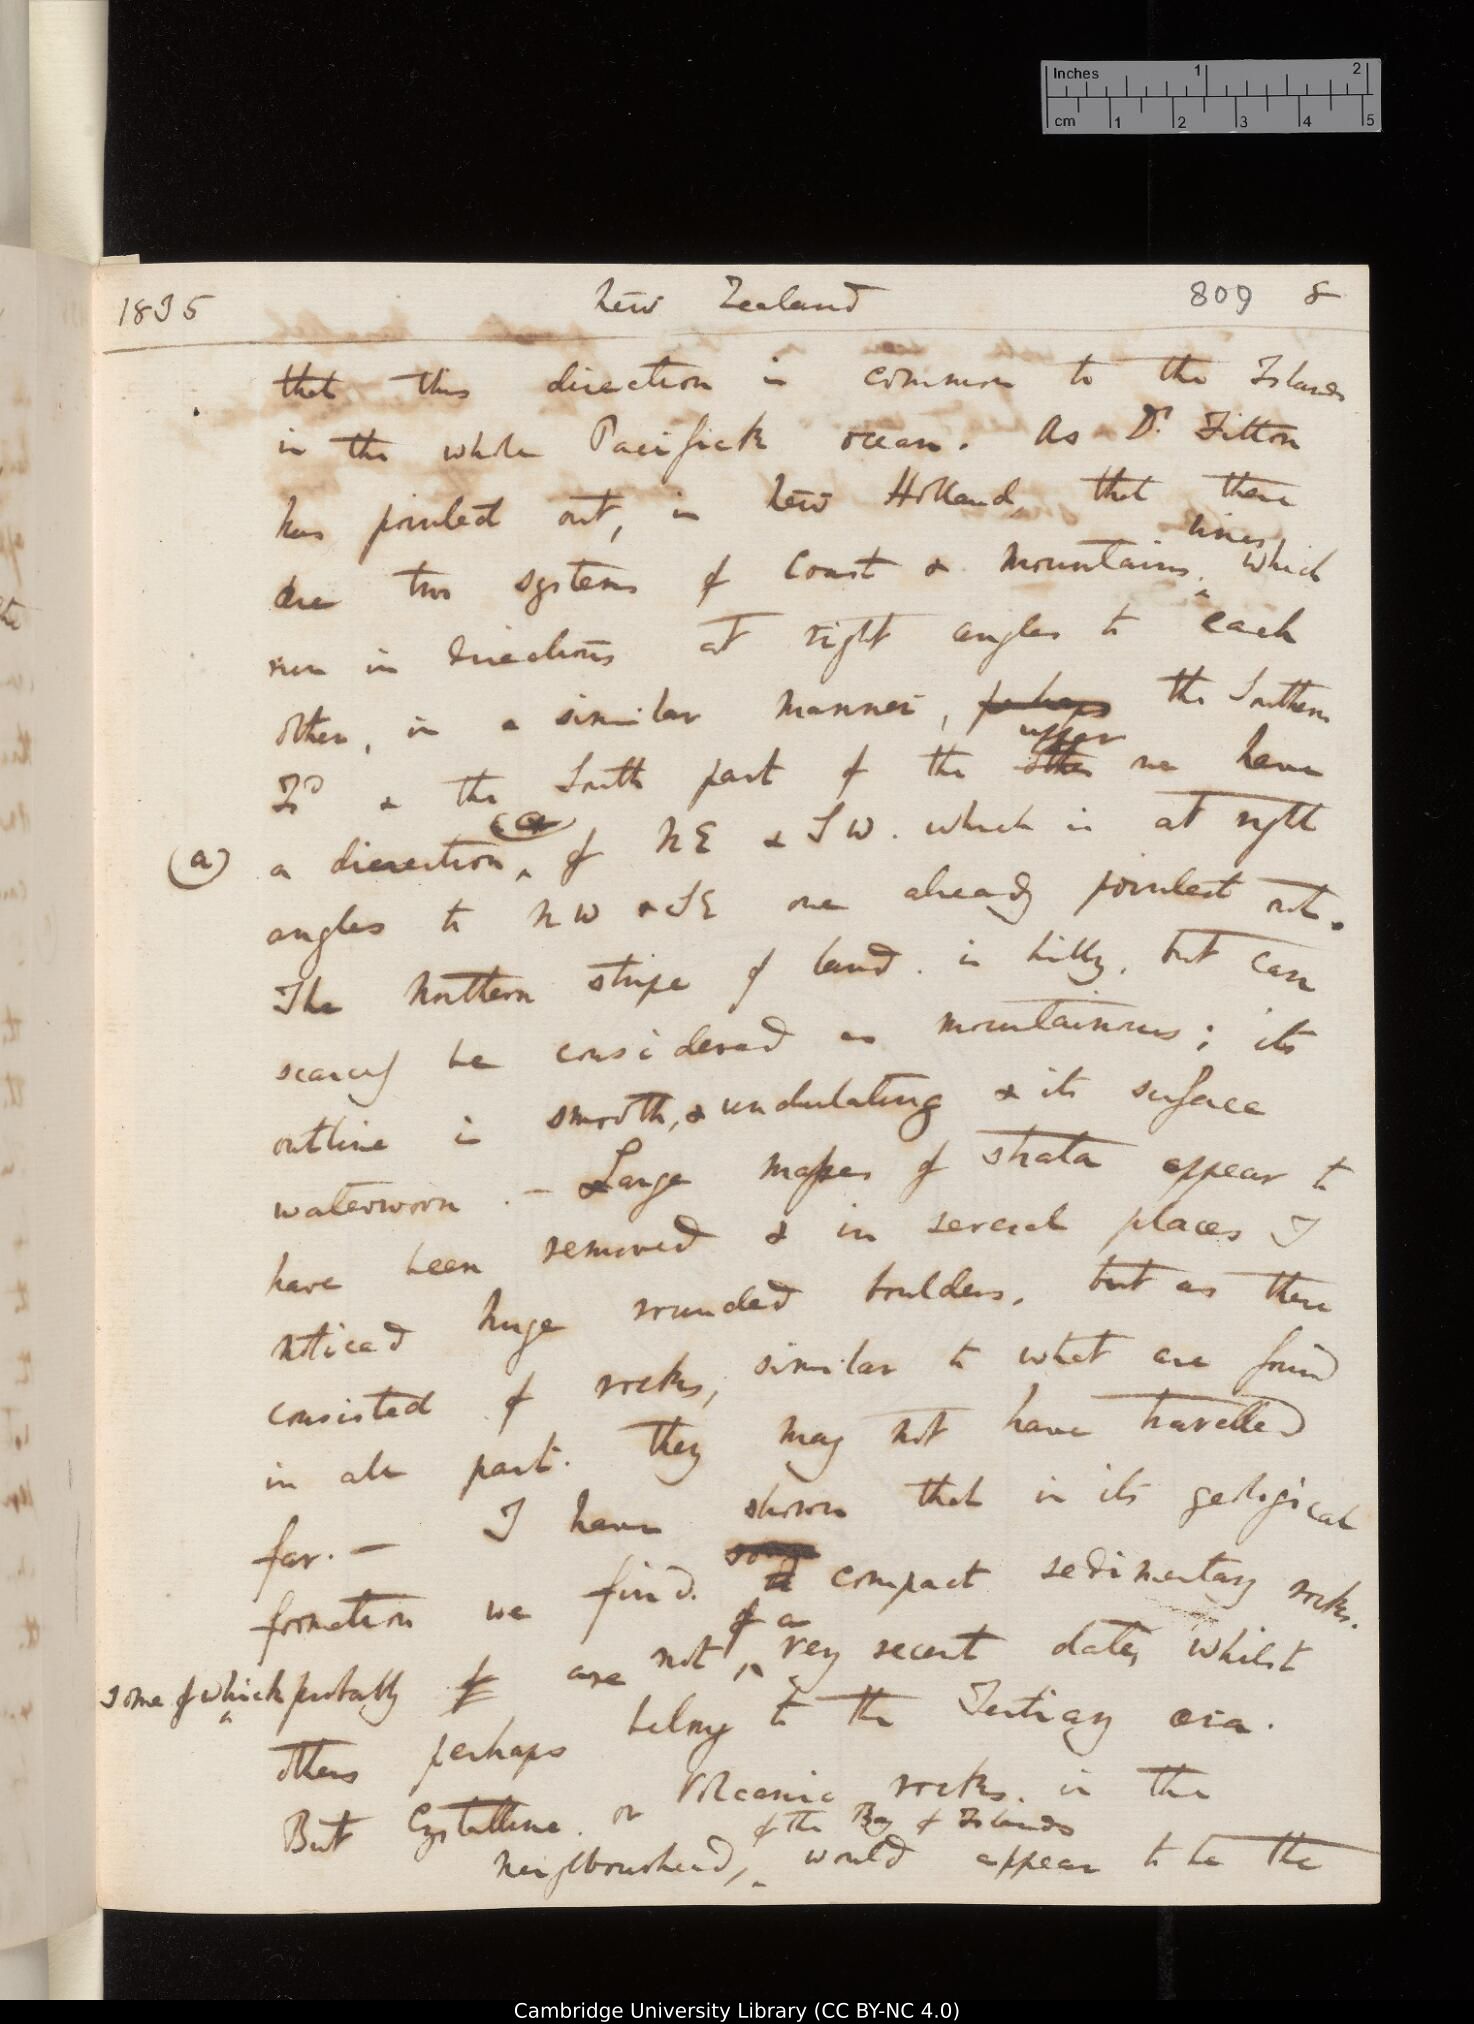 Inches 1 2
cm 1 2 3 4 5
1835 New Zealand 809 8
that this direction is common to the Islands
in the whole Pacifick ocean. As Dr. Fitton
has pointed out, in New Holland, that there
lines
are two systems of Coast & Mountains, which
run in directions at right angles to each
other, in a similar manner, perhaps the Southern
upper
Isd & the South part of the other we have
(a)
(a) a direction, of NE & SW. which is at right
angles to NW & SE one already pointed out.
The Northern stripe of land. is hilly, but can
scarcely be considered as mountainous; its
outline is smooth, & undulating & its surface
waterworn. — Large masses of strata appear to
have been removed & in several places I
noticed huge rounded boulders, but as these
consisted of rocks, similar to what are found
in all part. They may not have travelled
far. — I have shown that in its geological
some
formation we find. compact sedimentary rocks.
of a
some of which probably of are not, very recent date, whilst
others perhaps belong to the Tertiary æra.
But Crystalline. or Volcanic rocks. in the
of the Bay of Islands
neighbourhead, would appear to be the
Cambridge University Library (CC BY-NC 4.0)